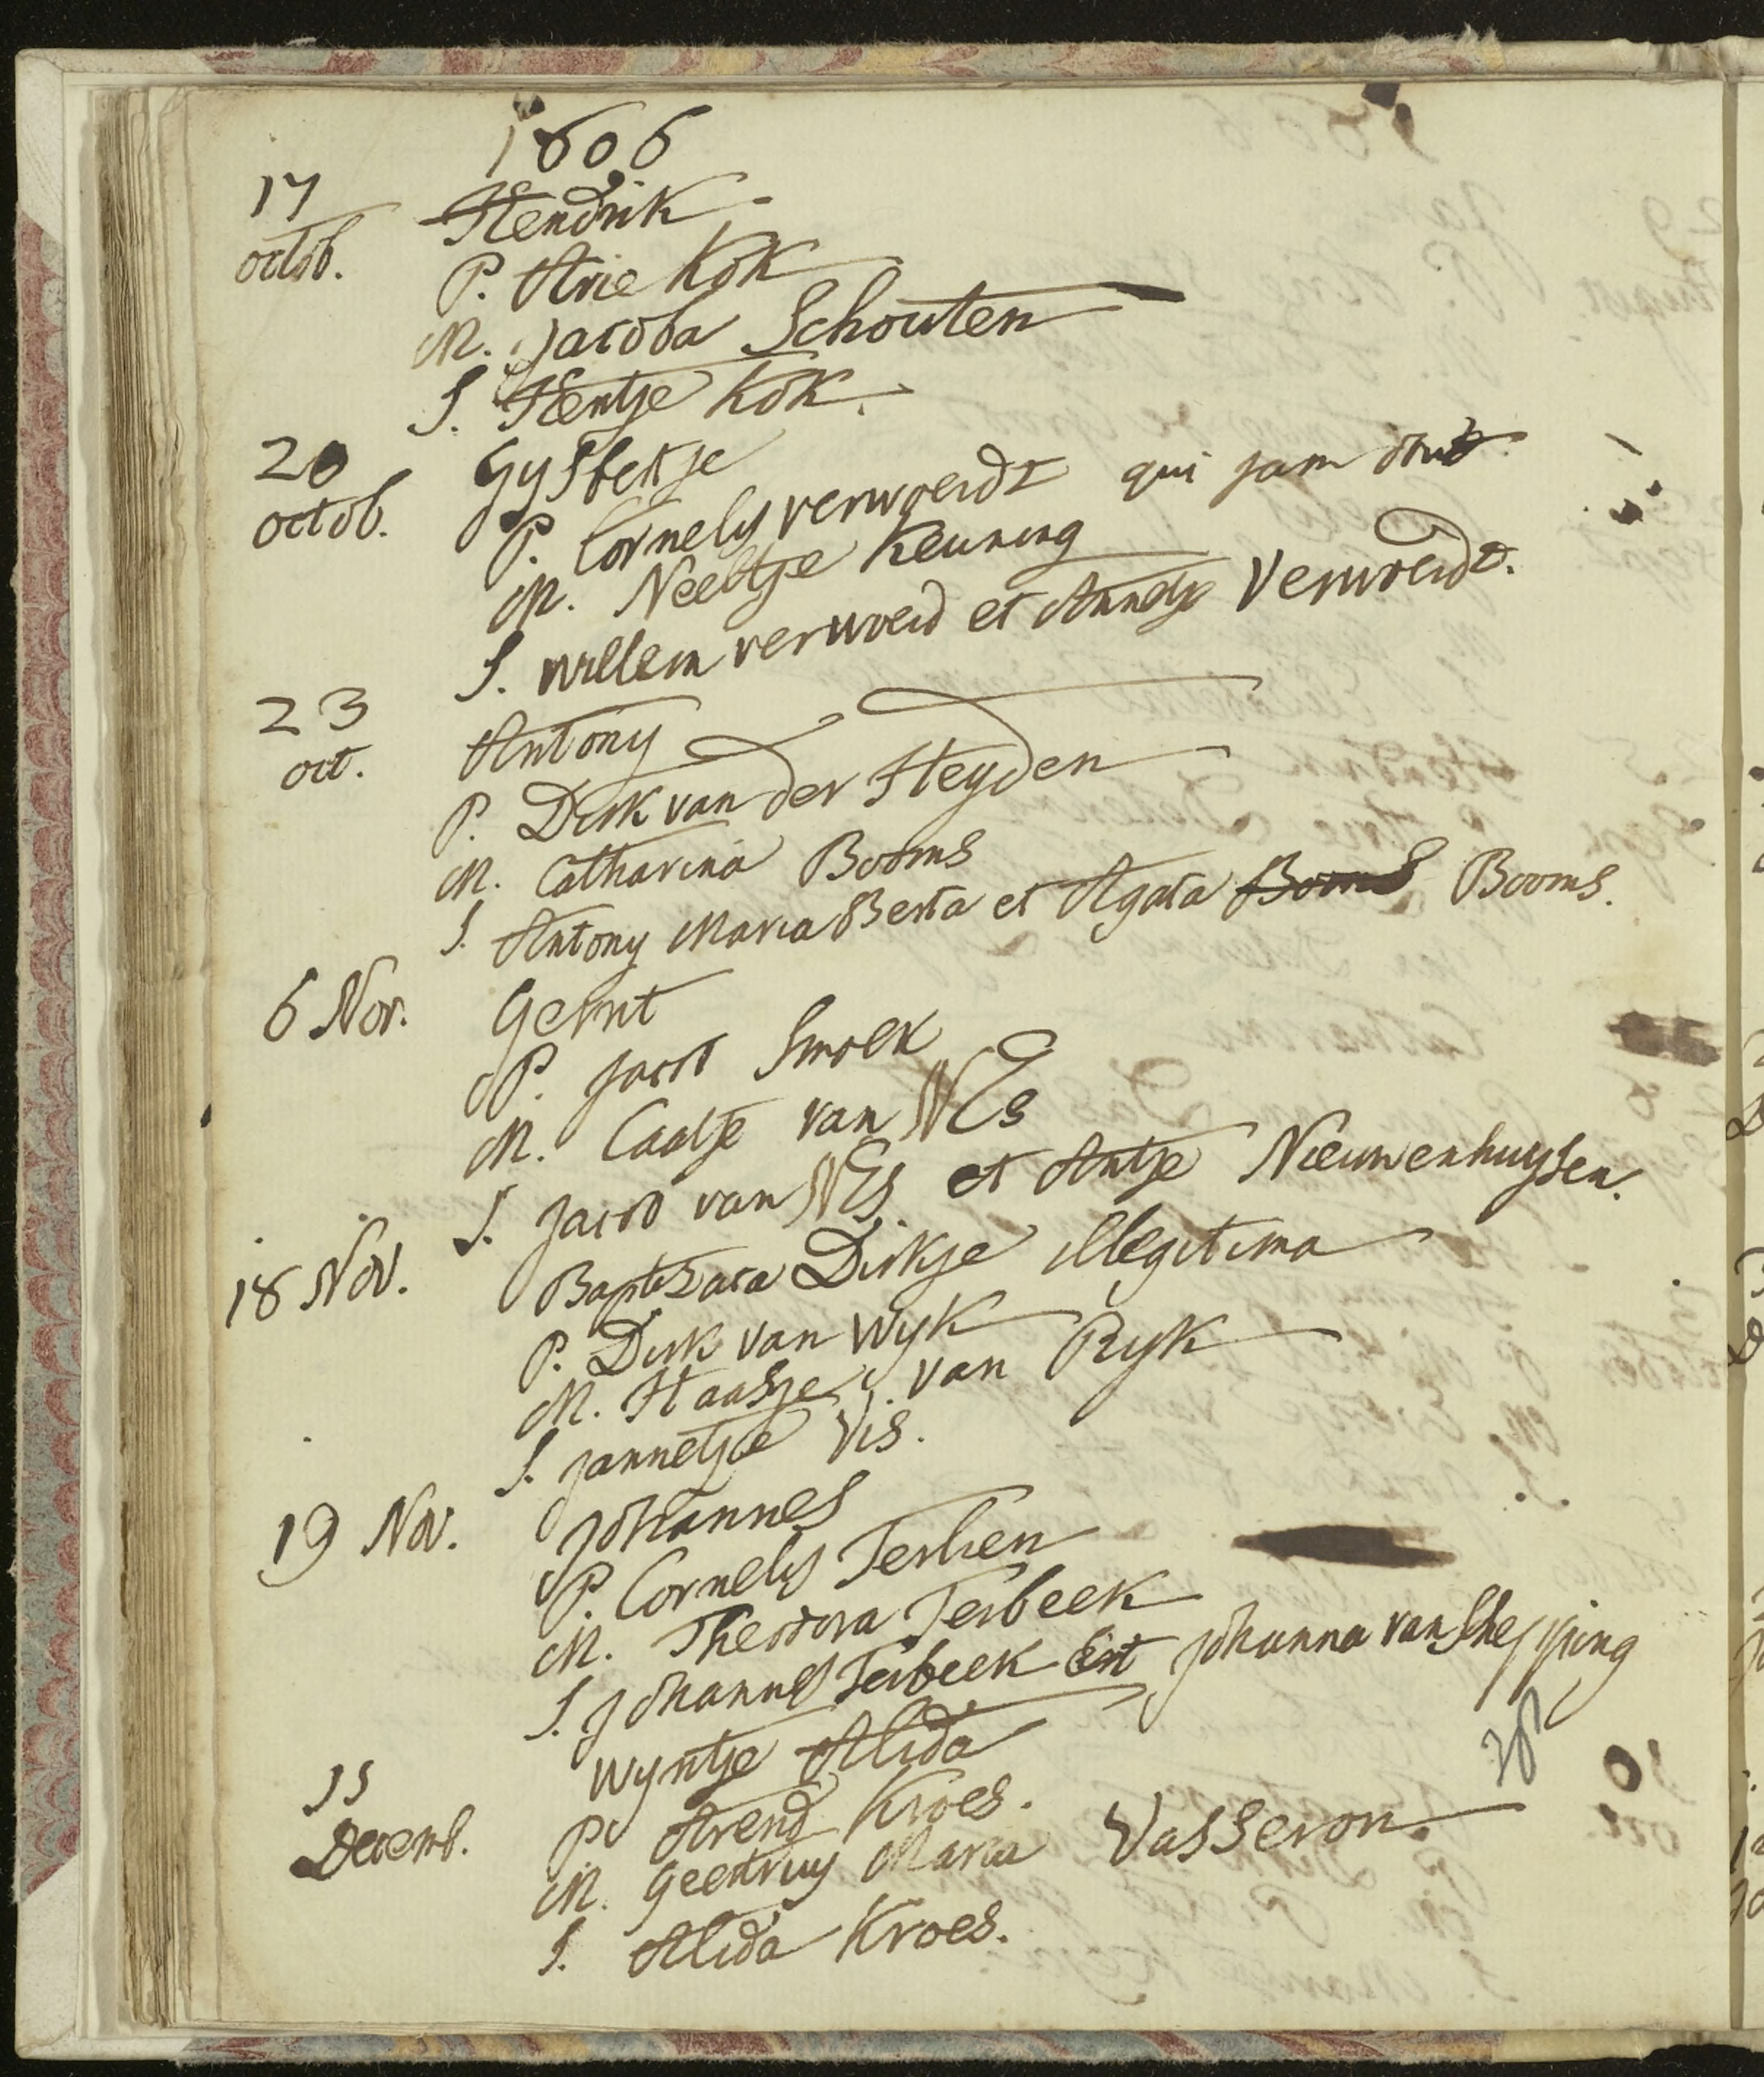 1806
17 octob. Hendrik
P. Arie Kok
M. Jacoba Schouten
S. Hentje Kok.
20 octob. Gysbertje
P. Cornelis verwoerdt qui jam obiit
M. Neeltje Keuning
S. willem verwoerd et Annetje Verwoerdt.
23 oct. Antony
P. Dirk van der Heyden
M. Catharina Booms
S. Antony Maria Berta et Agata Booms Booms.
6 Nov. Gerrit
P. Jacob Smoek
M. Caatje van NEs
S. Jacob van NEs et Antje Nieuwenhuysen.
18 Nov. Baptizata Dirkje illegitima
P. Dirk van Wyk
M. Haasje van Ryk
S. Jannetje Vis.
19 Nov. Johannes
P. Cornelis
M. Theodora Terbeek
S. Johannes Terbeek et Johanna van
15 Decemb. Wyntje Alida
P. Arend Kroes.
M. Geertruy Maria Vasseron
S. Alida Kroes.